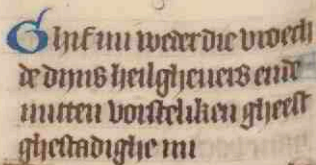 Ghif mi weder die vroech
de dyns heilghevers ende
mitten vorsteliken gheest
ghestadighe mi